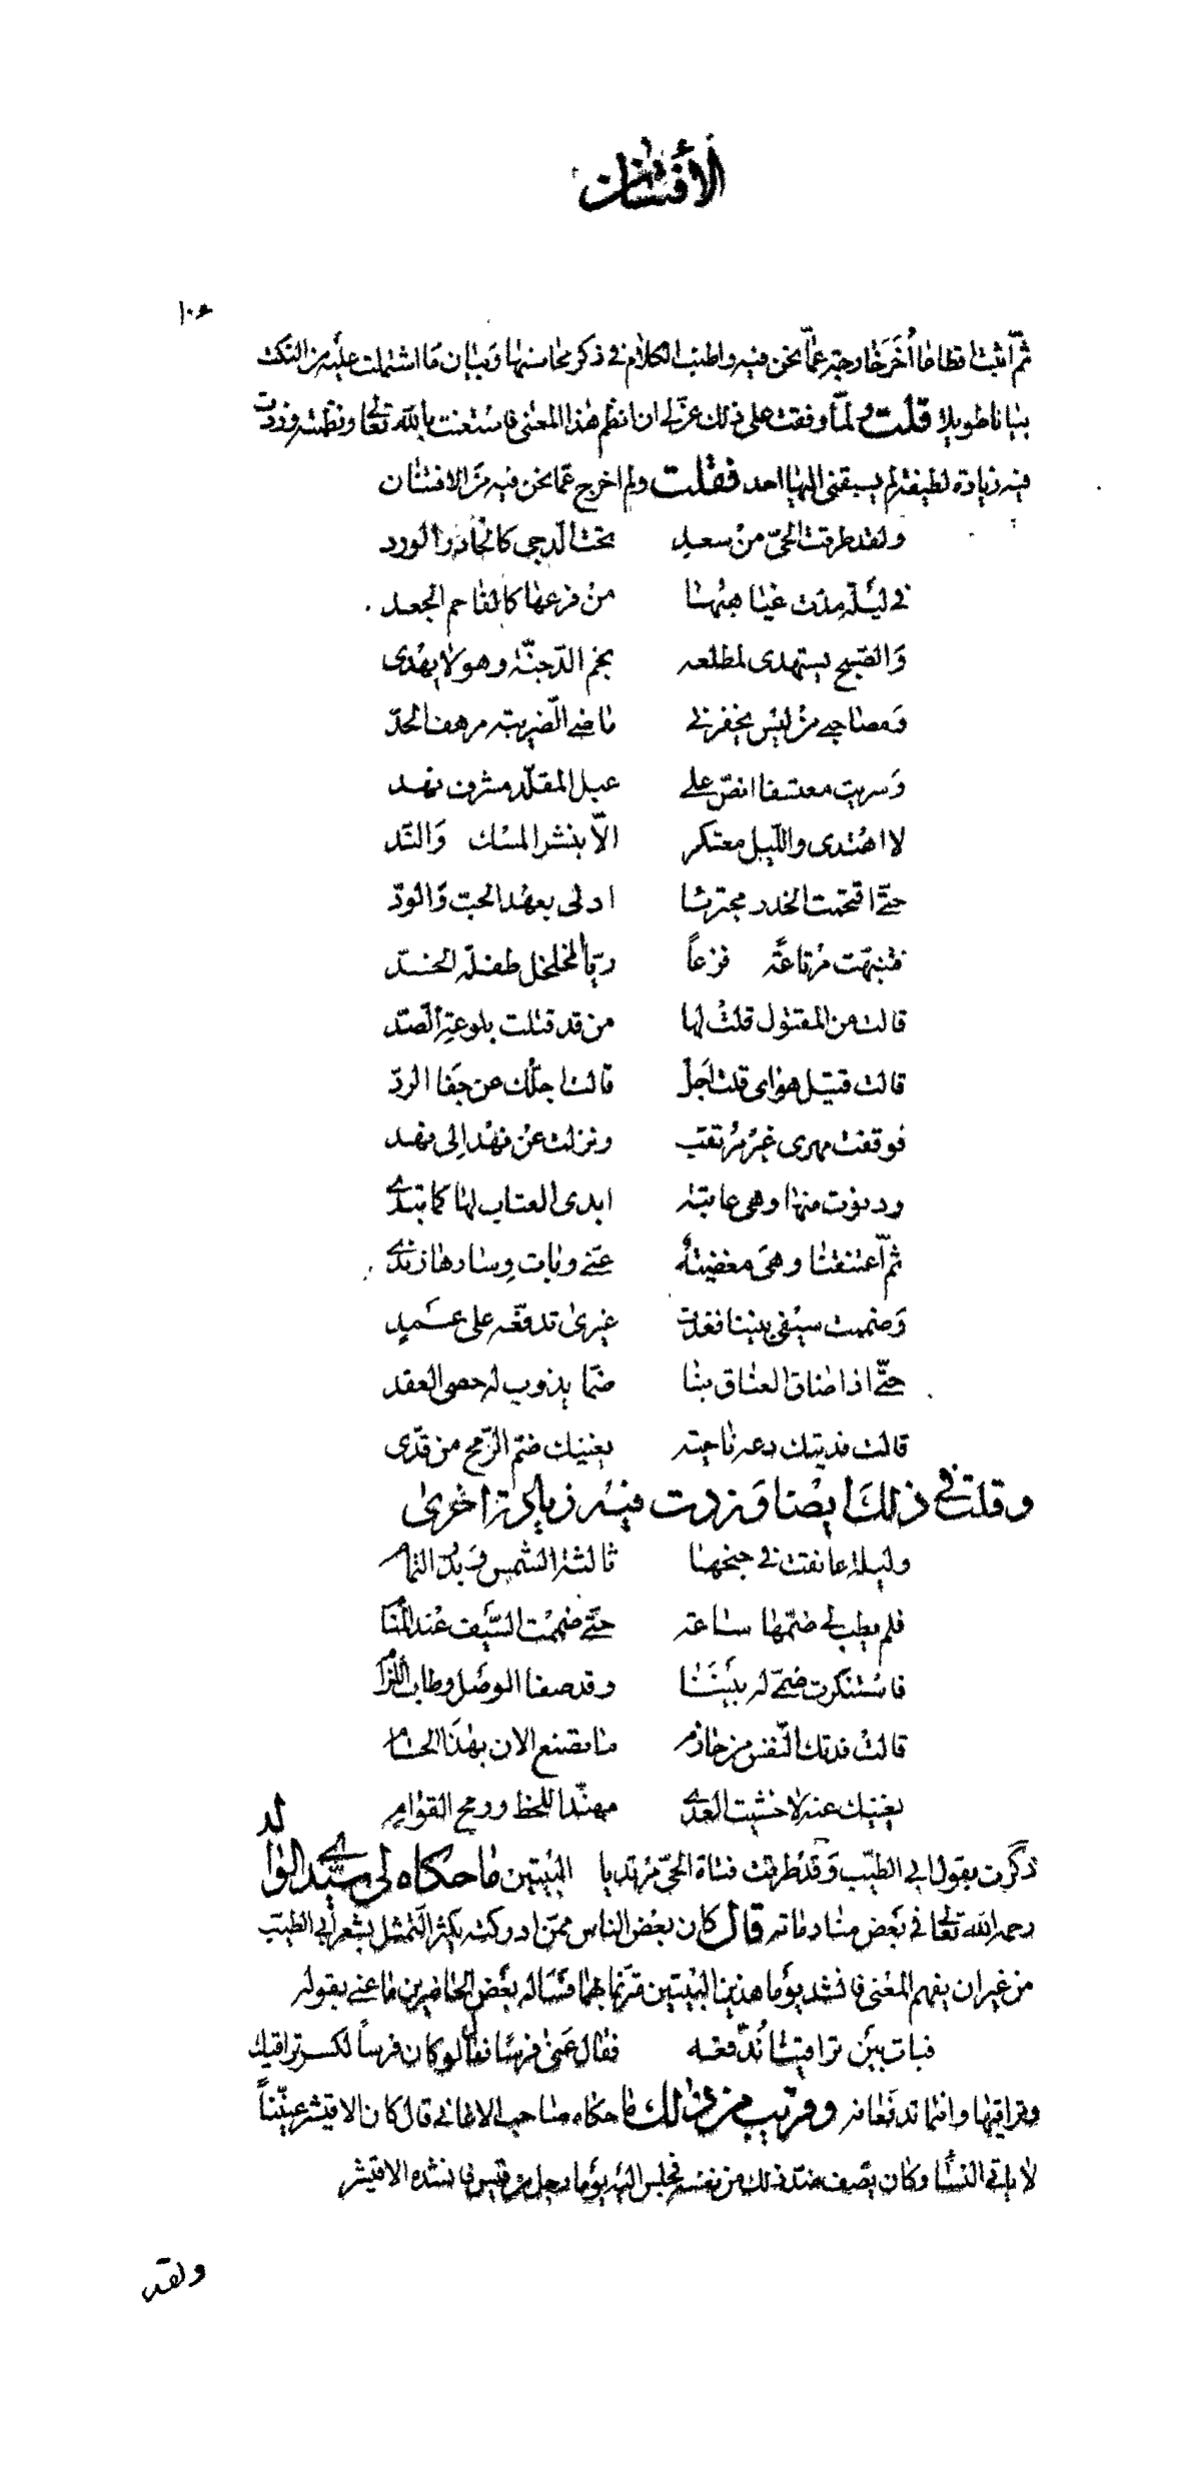 الأفتنان
١٠٤
ثم أثبت قطاعا أخر خارجة عما نحن فيه واطنب الكلام في ذكر محاسنها وبيان ما اشتملت عليه من النكت
بيانا طويلا قلت ولما وقفت على ذلك عن لي ان انظم هذا المعنى فاستعنت بالله تعالى ونظمته وزدت
فيه زيادة لطيفة لم يسبقني اليها احد فقلت ولم اخرج عما نحن فيه من الافتنان
ولقد طرقت الحي من سعد تحت الدجى كالخادر الورد
في ليلة مدت غياهبها من فرعها كالفاحم الجعد
والصبح يستهدى لمطلعه نجم الدجنة وهو لا يهدى
ومصاحبي من ليس يخفرني ماضي الضريبة مرهف الحد
وسريت معتسفا انص على عبل المقلد مشرف نهد
لا اهتدى والليل معتكر الا بنشر المسك والند
حتى اقتحمت الخدر مجترئا ادلى بعهد الحب والود
فتنبهت مرتاعة فزعاً ريا المخلخل طفلة الخد
قالت من المقتول قلت لها من قد قتلت بلوعة الصد
قالت قتيل هواى قلت اجل قالت اجلك عن جفا الرد
فوقفت مهرى غير مرتقب ونزلت عن نهد الى نهد
ودنوت منها وهى عاتبة ابدى العتاب لها كما تبدي
ثم اعتنقنا وهي مغضية عني وبات وسادها زندي
وضممت سيفي بيننا فغدت غيرى تدفعه على عمد
حتى اذا ضاق العناق بنا ضما يذوب له حصى العقد
قالت فديتك دعه ناحية يغنيك ضم الرمح من قدى
وقلت في ذلك ايضا وزدت فيه زيادة اخرى
وليلة عانقت في جنحها ثالثة الشمس وبدر التمام
فلم يطب لي ضمها ساعة حتى ضممت السيف عند المنام
فاستنكرت ضمي له بيننا وقد صفا الوصل وطاب اللزام
قالت فدتك النفس من حازم ما تصنع الان بهذا الحسام
يغنيك عنه لا خشيت العدى مهند اللحظ ورمح القوام
ذكرت بقول ابي الطيب وقد طرقت فتاة الحي مرتديا البيتين ما حكاه لي سيدي الوالد
رحمه الله تعالى في بعض منادماته قال كان بعض الناس ممن ادركته يكثر التمثل بشعر أبي الطيب
من غير ان يفهم المعنى فانشد يوما هذين البيتين مترنما بهما فسأله بعض الحاضرين ما عنى بقوله
فبات بين تراقينا ندفعه فقال عنى فرسا فقال لو كان فرساً لكسر تراقيك
وتراقيها وانما تدفعانه وقريب من ذلك ما حكاه صاحب الاغاني قال كان الاقيشر عنيناً
لا ياتى النسا وكان يصف ضد ذلك من نفسه فجلس اليه يوما رجل من قيس فانشده الاقيشر
ولقد